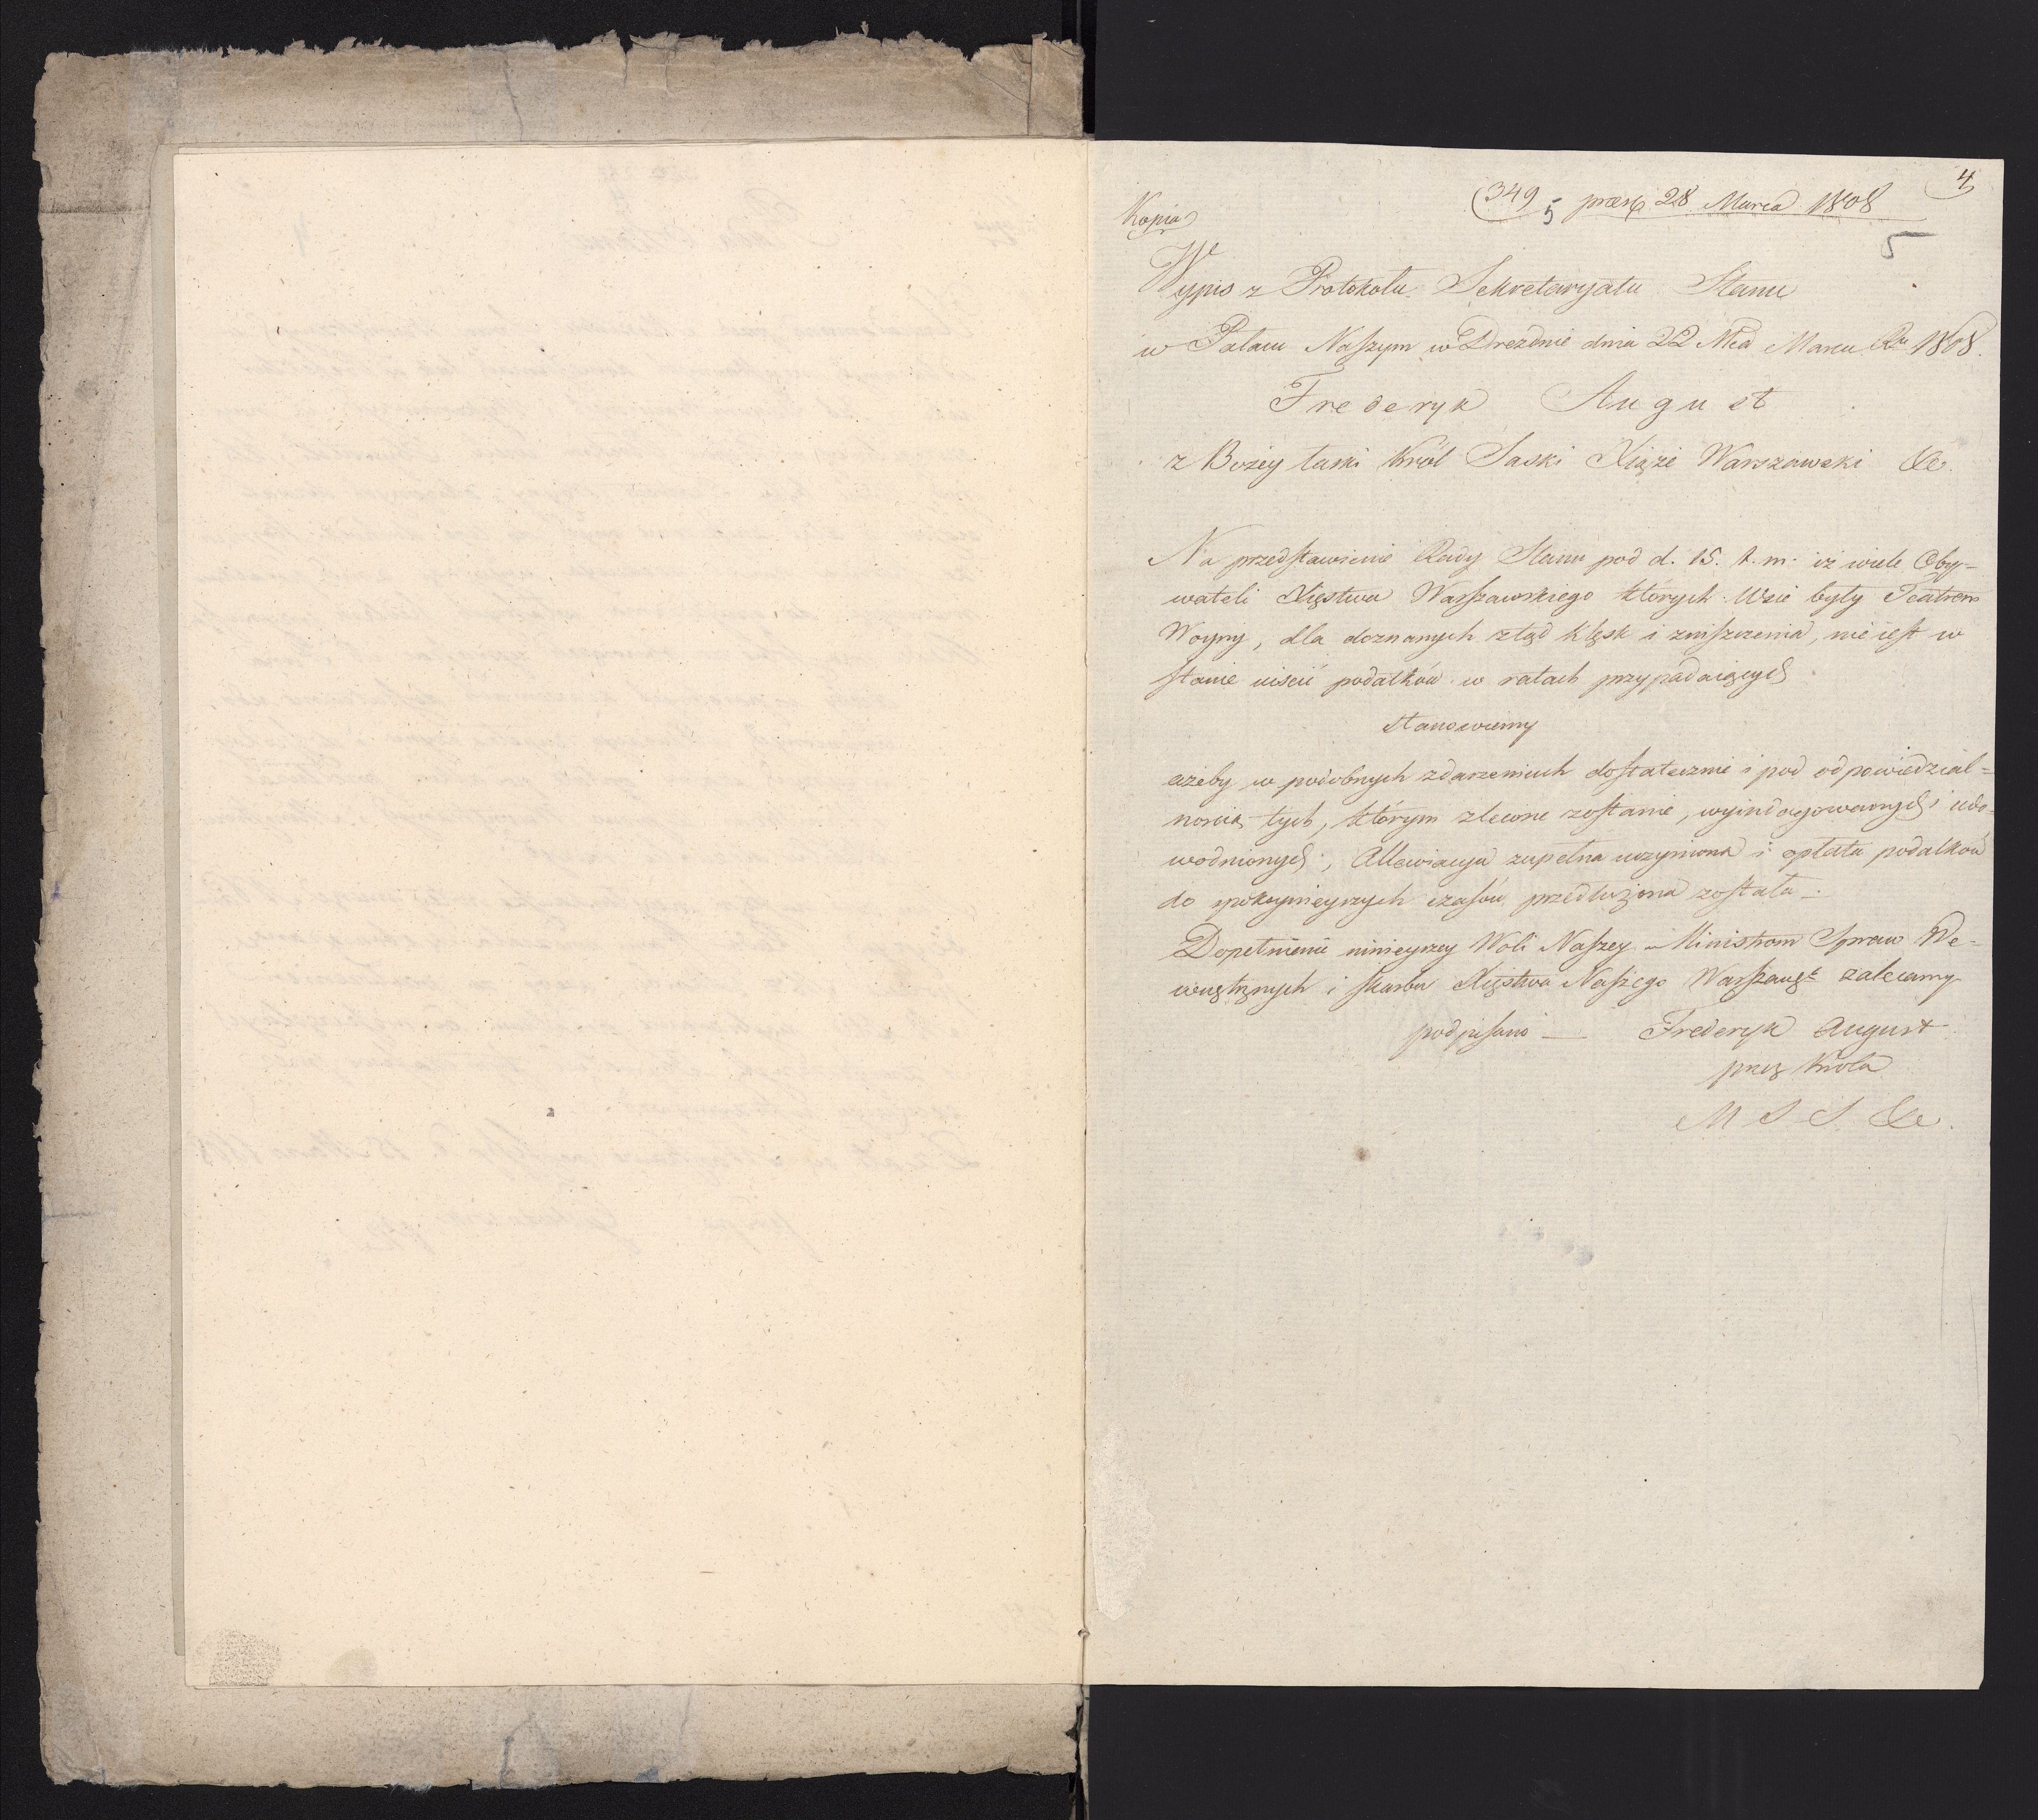 4
349
5 præs 28 Marca 1808
5
Kopia
Wypis z Protokołu Sekretaryatu Stanu
w Pałacu Naszym w Dreznie dnia 22 Mca Marca Ru 1808.
Frederyk August
z Bożey łaski Król Saski Xiąże Warszawski &c.
Na przedstawienie Rady Stanu pod d. 15. t. m. iż wiele Oby-
wateli Xięstwa Warszawskiego których Wsie były Teatrem
Woyny, dla doznanych ztąd klęsk i zniszczenia, nie iest w
stanie uiścić podatków w ratach przypadaiących
Stanowiemy
ażeby w podobnych zdarzeniach dostatecznie i pod odpowiedzial=
nością tych, którym zlecone zostanie, wyindagowanych i udo-
wodnionych, Allewiacya zupełna uczyniona i opłata podatków
do spokoynieyszych czasów przedłużona została.
Dopełnienie ninieyszey Woli Naszey Ministrom Spraw We-
wnętrznych i Skarbu Xięstwa Naszego Warszawsk zalecamy
podpisano — Frederyk August
przez Króla
M S S. &c.